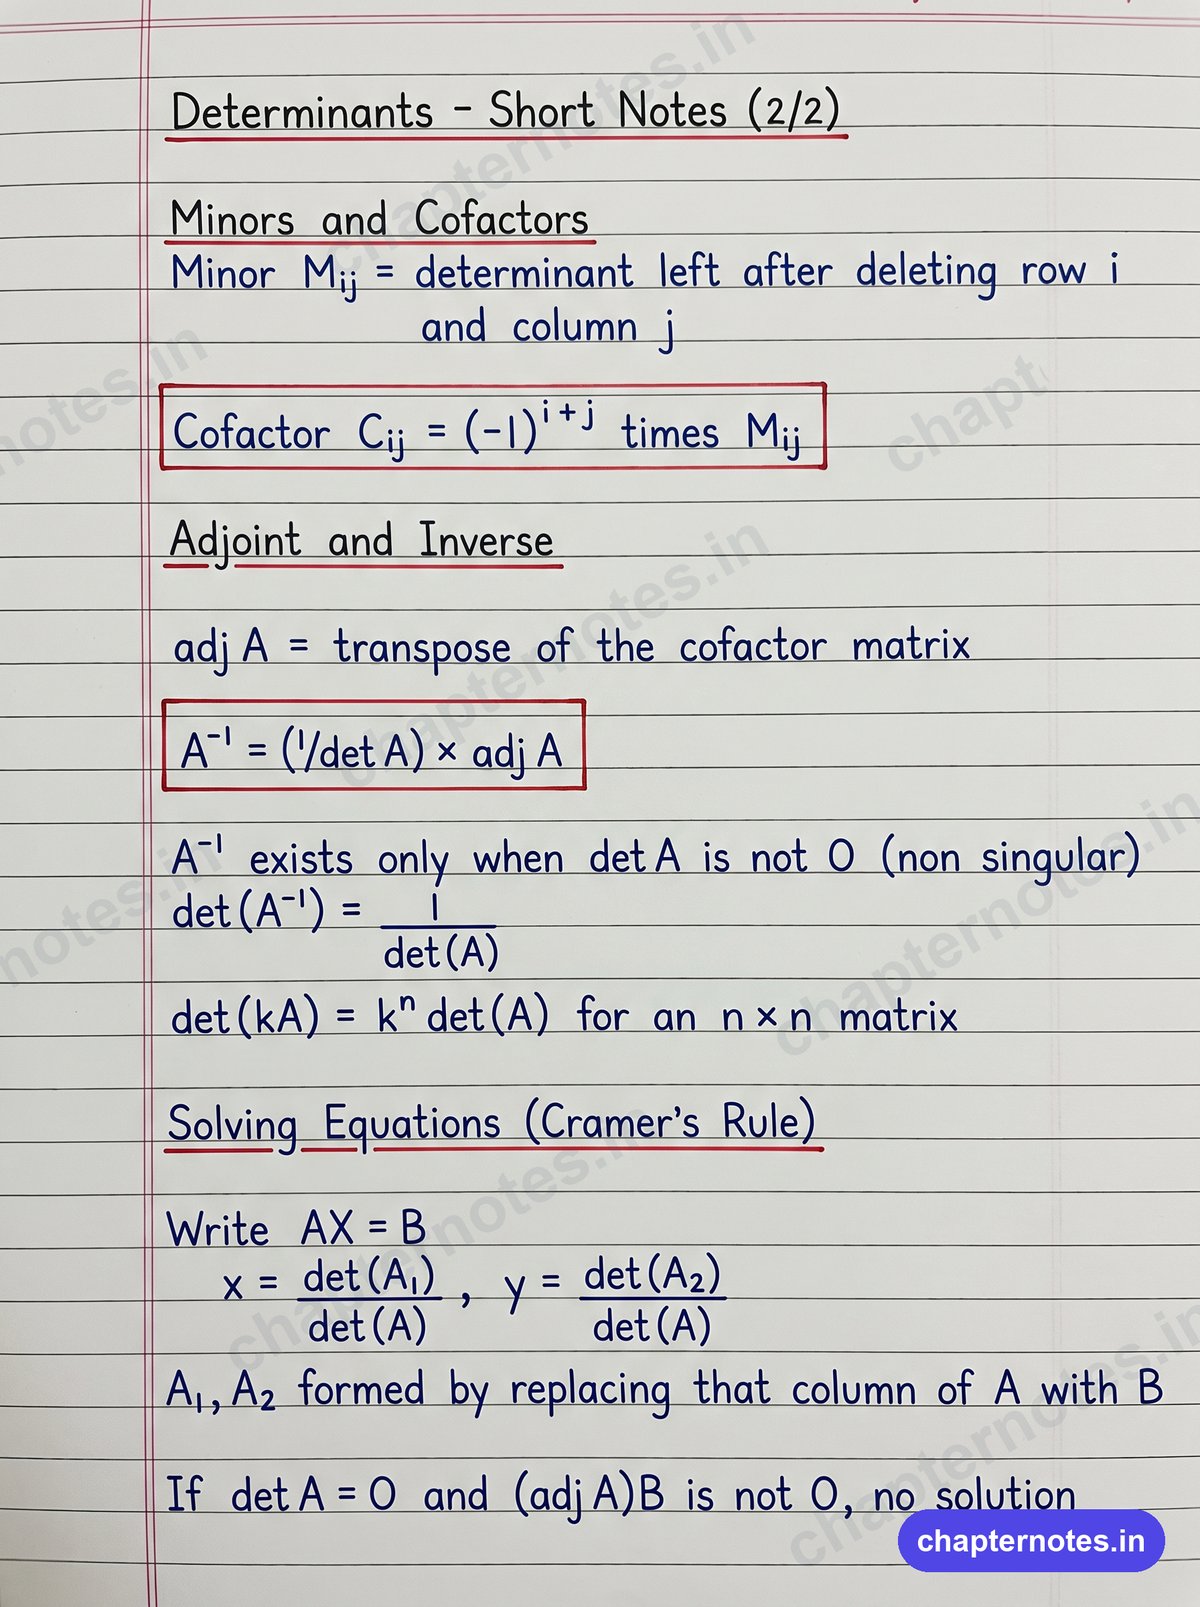 Determinants - Short Notes (2/2)
Minors and Cofactors
Minor Mij = determinant left after deleting row i
and column j
Cofactor Cij = (-1)^(i+j) times Mij
Adjoint and Inverse
adj A = transpose of the cofactor matrix
A⁻¹ = (1/det A) × adj A
A⁻¹ exists only when det A is not 0 (non singular)
det(A⁻¹) = 1/det(A)
det(kA) = kⁿ det(A) for an n × n matrix
Solving Equations (Cramer's Rule)
Write AX = B
x = det(A₁)/det(A), y = det(A₂)/det(A)
A₁, A₂ formed by replacing that column of A with B
If det A = 0 and (adj A)B is not 0, no solution
chapternotes.in